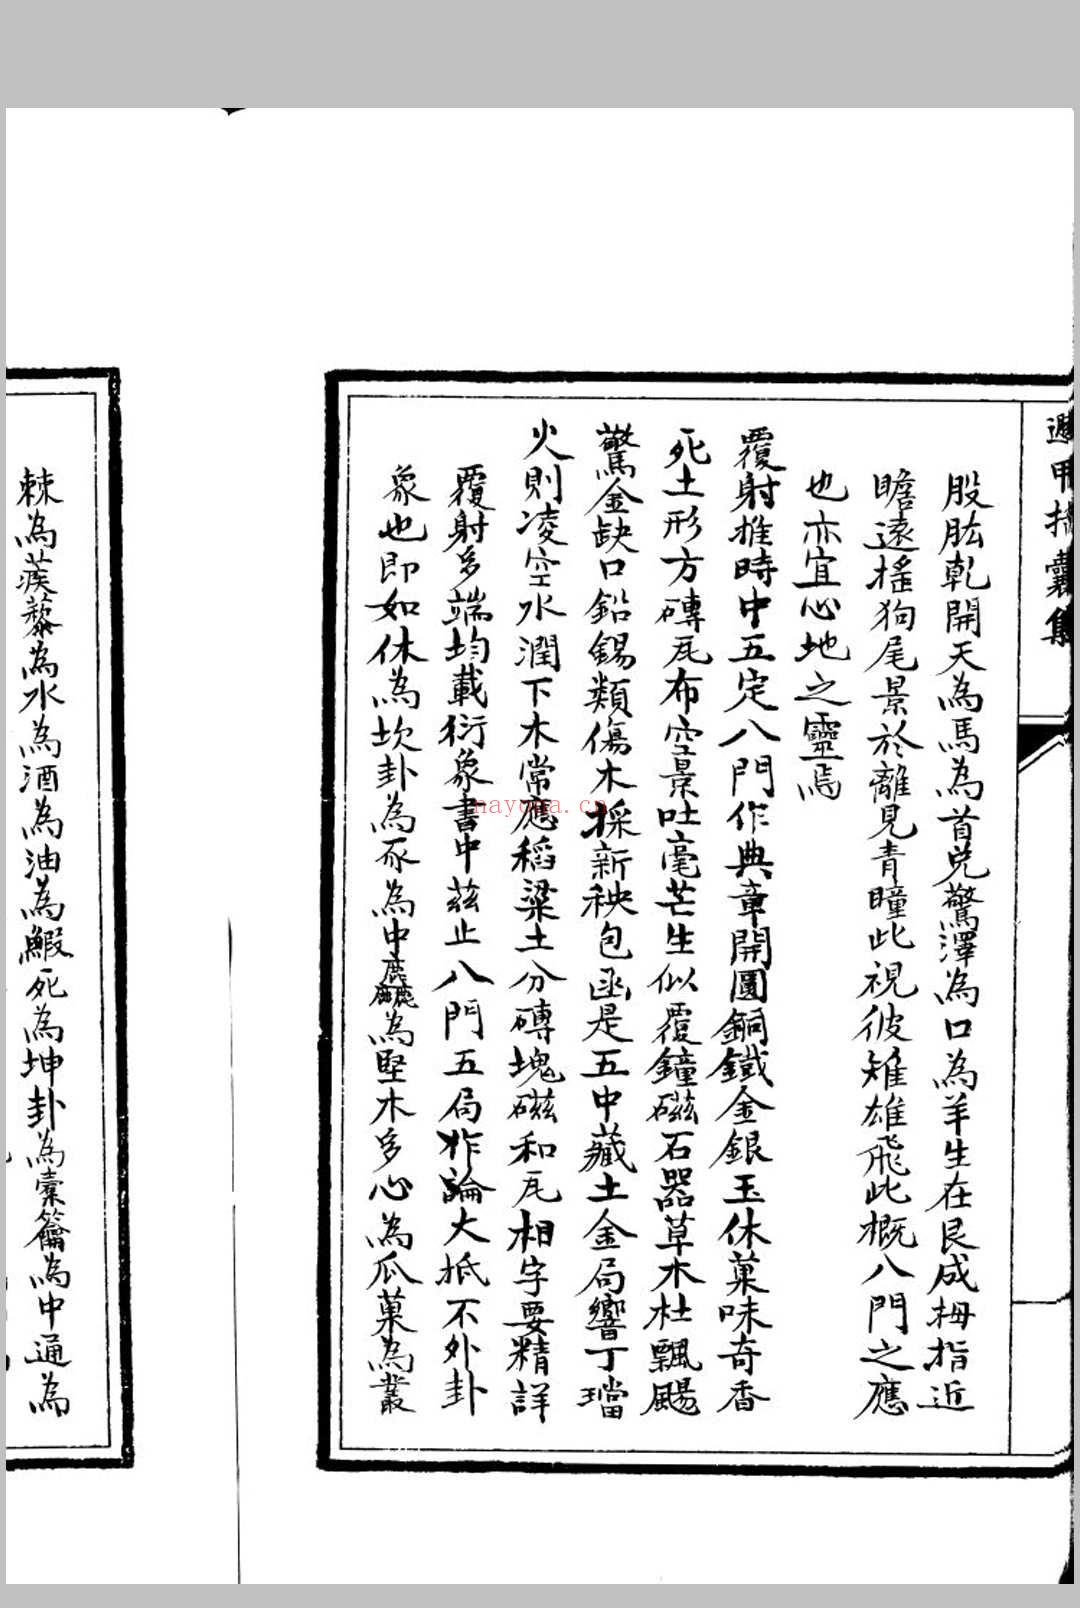 遯甲括囊集
股肱乾開天為馬為首兌驚澤為口為羊生在艮成拇指近
瞻遠搖狗尾景於離見青瞳此視彼雉雄飛此概八門之應
也亦宜心地之靈焉
覆射推時中五定八門作典章開圓銅鐵金銀玉休菓味奇香
死土形方磚瓦布空景吐毫芒生似覆鐘磁石器草木杜飄颺
驚金缺口鉛錫類傷木採新秧包函是五中藏土金局響丁璫
火則凌空水潤下木常應稻粱土分磚塊磁和瓦相字要精詳
覆射多端均載衍象書中茲止八門五局作論大抵不外卦
象也即如休為坎卦為豕為中麤為堅木多心為瓜菓為叢
棘為蒺藜為水為酒為油為鰕死為坤卦為橐籥為中通為
nayona.cn